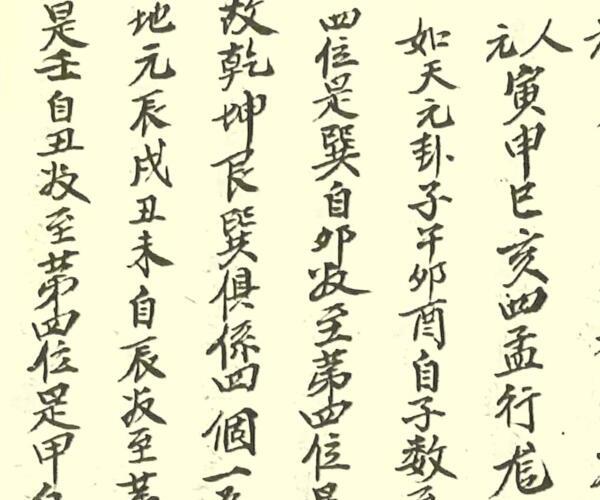 人元寅申巳亥四孟行
如天元卦子午卯酉自子数
四位是巽自卯数至第四位是
故乾坤艮巽俱係四個一
地元辰戌丑未自辰数至第
是壬自丑数至第四位是甲